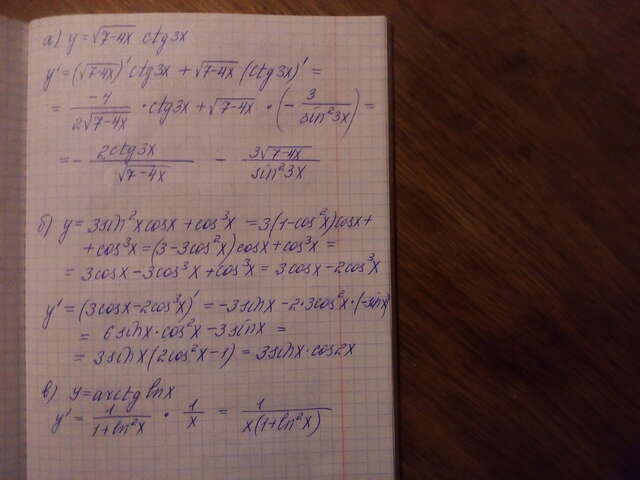 а) y = √(7-4x) ctg3x
y' = (√(7-4x))' ctg3x + √(7-4x) (ctg3x)' =
= -4/(2√(7-4x)) · ctg3x + √(7-4x) · (- 3/(sin²3x)) =
= - 2ctg3x/√(7-4x) - 3√(7-4x)/sin²3x
б) y = 3sin²x cosx + cos³x = 3(1-cos²x)cosx +
+ cos³x = (3-3cos²x)cosx + cos³x =
= 3cosx - 3cos³x + cos³x = 3cosx - 2cos³x
y' = (3cosx - 2cos³x)' = -3sinx - 2·3cos²x·(-sinx)
= 6sinx·cos²x - 3sinx =
= 3sinx(2cos²x - 1) = 3sinx·cos2x
в) y = arctg lnx
y' = 1/(1+ln²x) · 1/x = 1/(x(1+ln²x))